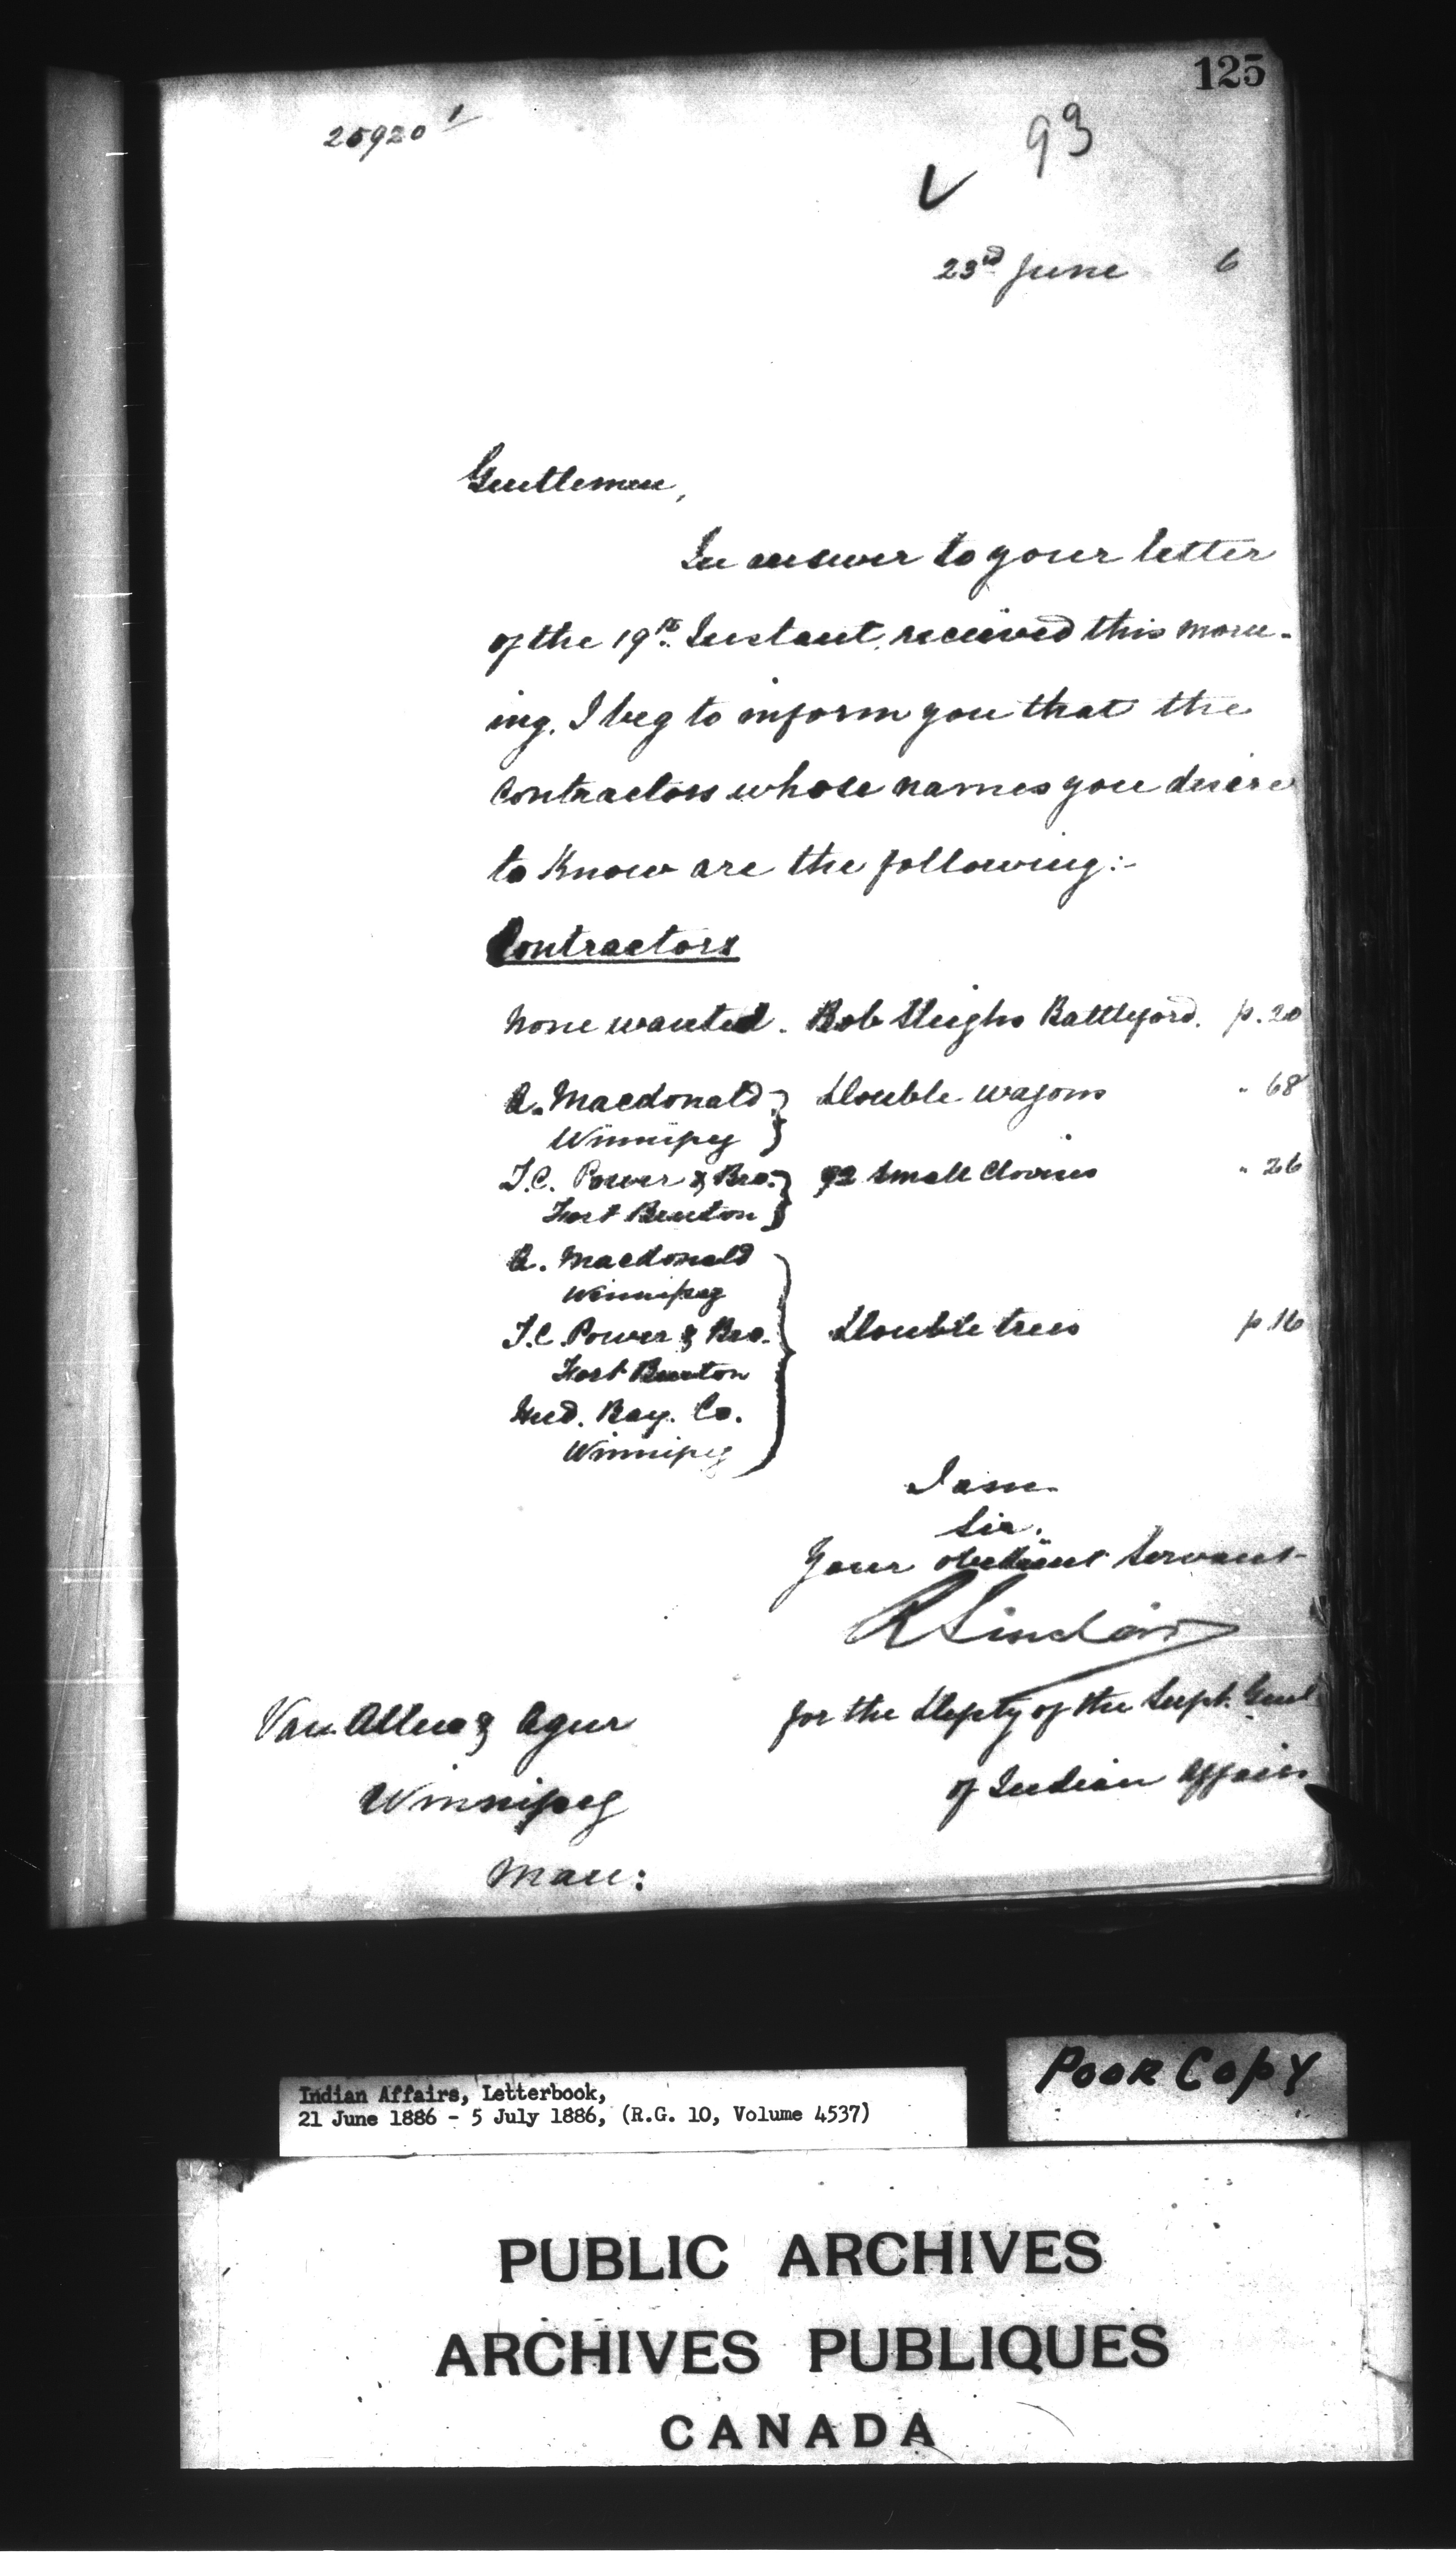 125
25920 1/
93
23rd June 6
Gentlemen,
In answer to your letter
of the 19th. Instant, received this morn-
ing, I beg to inform you that the
Contractors whose names you desire
to Know are the following:-
Contractors
None wanted. Bob Sleighs Battleford. p. 20
A. Macdonald } Double wagons " 68
Winnipeg
T.C. Power & Bro. } 92 Small " 26
Fort Benton
A. Macdonald
Winnipeg
T.C. Power & Bro. } Double trees p 16
Fort Benton
Hud. Bay. Co.
Winnipeg
I am
Sir.
Your obedient Servant
R Sinclair
for the Depty of the Supt. Genl
of Indian Affairs
Van Allen & Agur
Winnipeg
Man:
Poor Copy
Indian Affairs, Letterbook,
21 June 1886 - 5 July 1886, (R.G. 10, Volume 4537)
PUBLIC ARCHIVES
ARCHIVES PUBLIQUES
CANADA